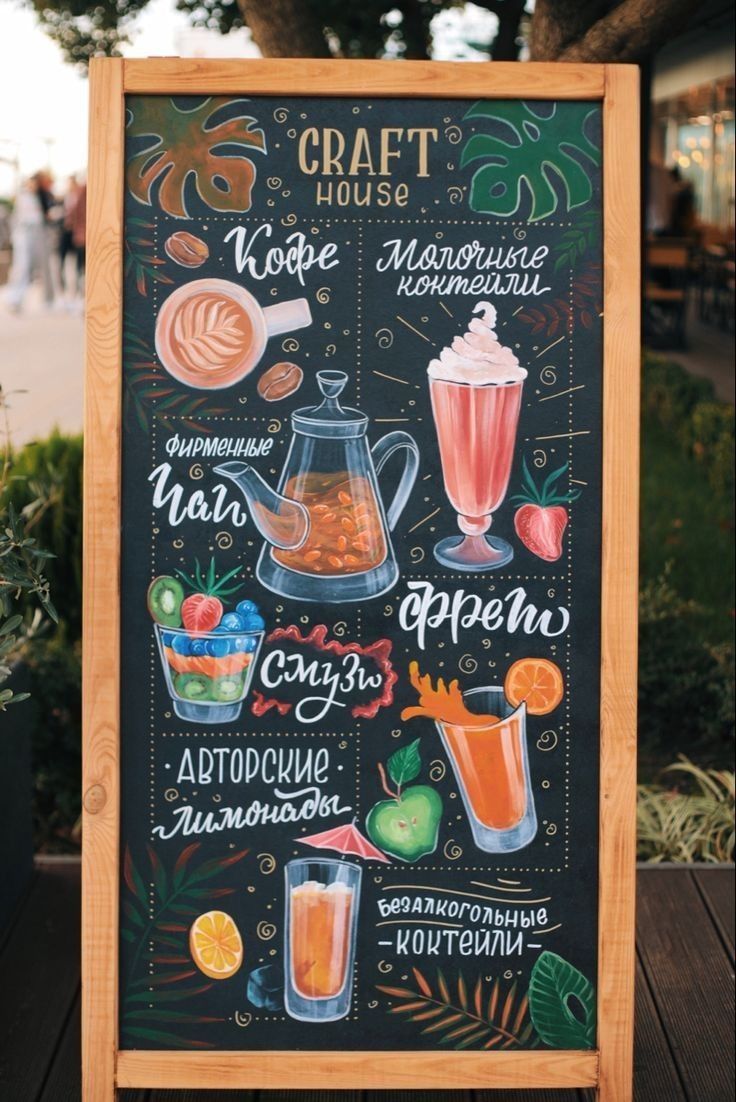 CRAFT
HOUSE
Кофе
Молочные
коктейли
ФИРМЕННЫЕ
Чаи
фреш
смузи
АВТОРСКИЕ
лимонады
БЕЗАЛКОГОЛЬНЫЕ
-КОКТЕЙЛИ-